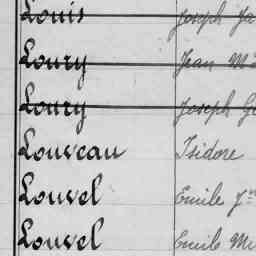 Louis Joseph
Loury Jean
Loury Joseph
Louveau Isidore
Louvel Emile
Louvel Emile